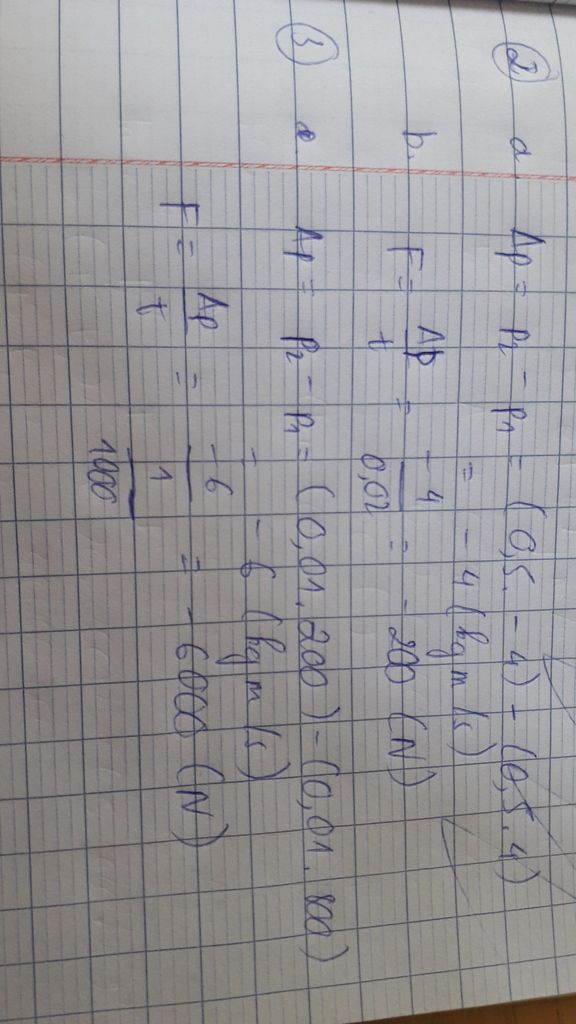 ② a. Δp = p₂ - p₁ = (0,5. -4) - (0,5.4)
= -4 (kg m/s)
b. F = Δp/t = -4/0,02 = -200 (N)
③ a. Δp = p₂ - p₁ = (0,01.200) - (0,01.800)
= -6 (kg m/s)
F = Δp/t = -6/(1/1000) = -6000 (N)